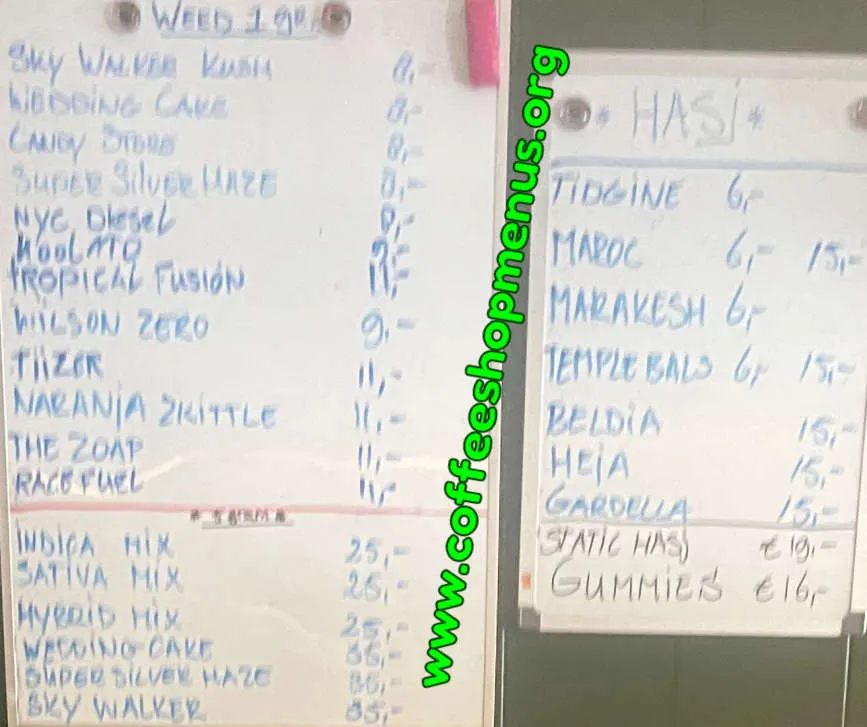 WEED 1 gr.
SKY WALKER KUSH 8,-
WEDDING CAKE 8,-
CANDY STORE 8,-
SUPER SILVER HAZE 8,-
NYC Diesel 8,-
MOOLATO 9,-
TROPICAL FUSION 11,-
WILSON ZERO 9,-
TIIZER 11,-
NARANJA ZKITTLE 11,-
THE ZOAP 11,-
RACE FUEL 11,-
INDICA MIX 25,-
SATIVA MIX 25,-
HYBRID MIX 25,-
WEDDING CAKE 35,-
SUPER SILVER HAZE 35,-
SKY WALKER 35,-
www.coffeeshopmenus.org
* HASJ *
TIDGINE 6,-
MAROC 6,- 15,-
MARAKESH 6,-
TEMPLE BALS 6,- 15,-
BELDIA 15,-
HEJA 15,-
GARDELLA 15,-
STATIC HASJ
GUMMIES € 16,-